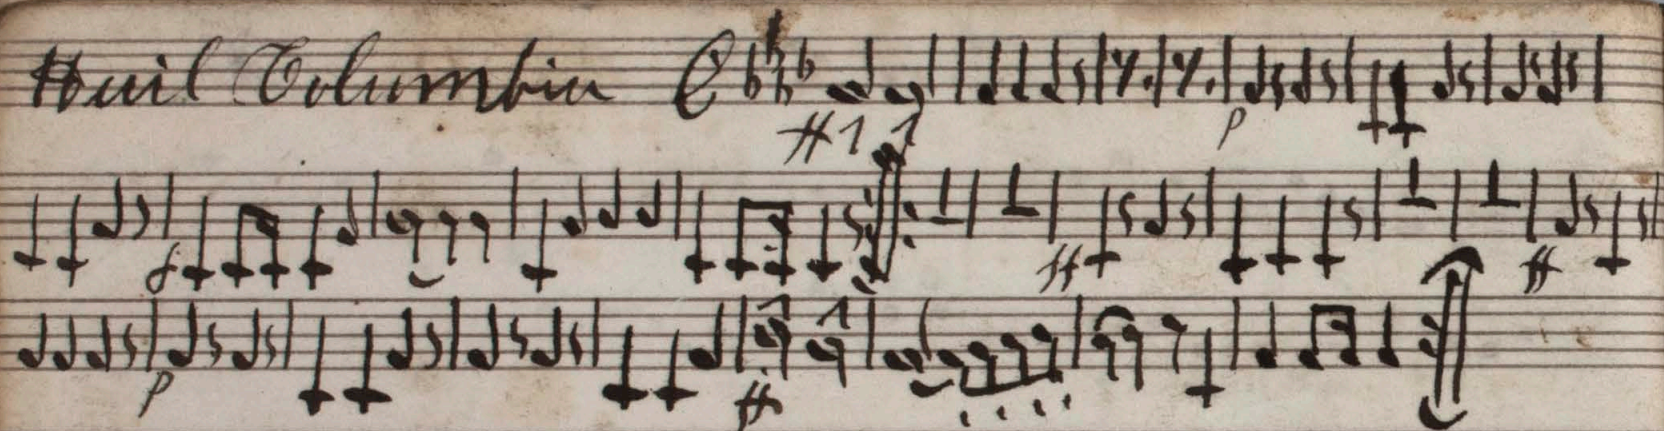 Hail Columbia
ff p
f ff ff
p ff